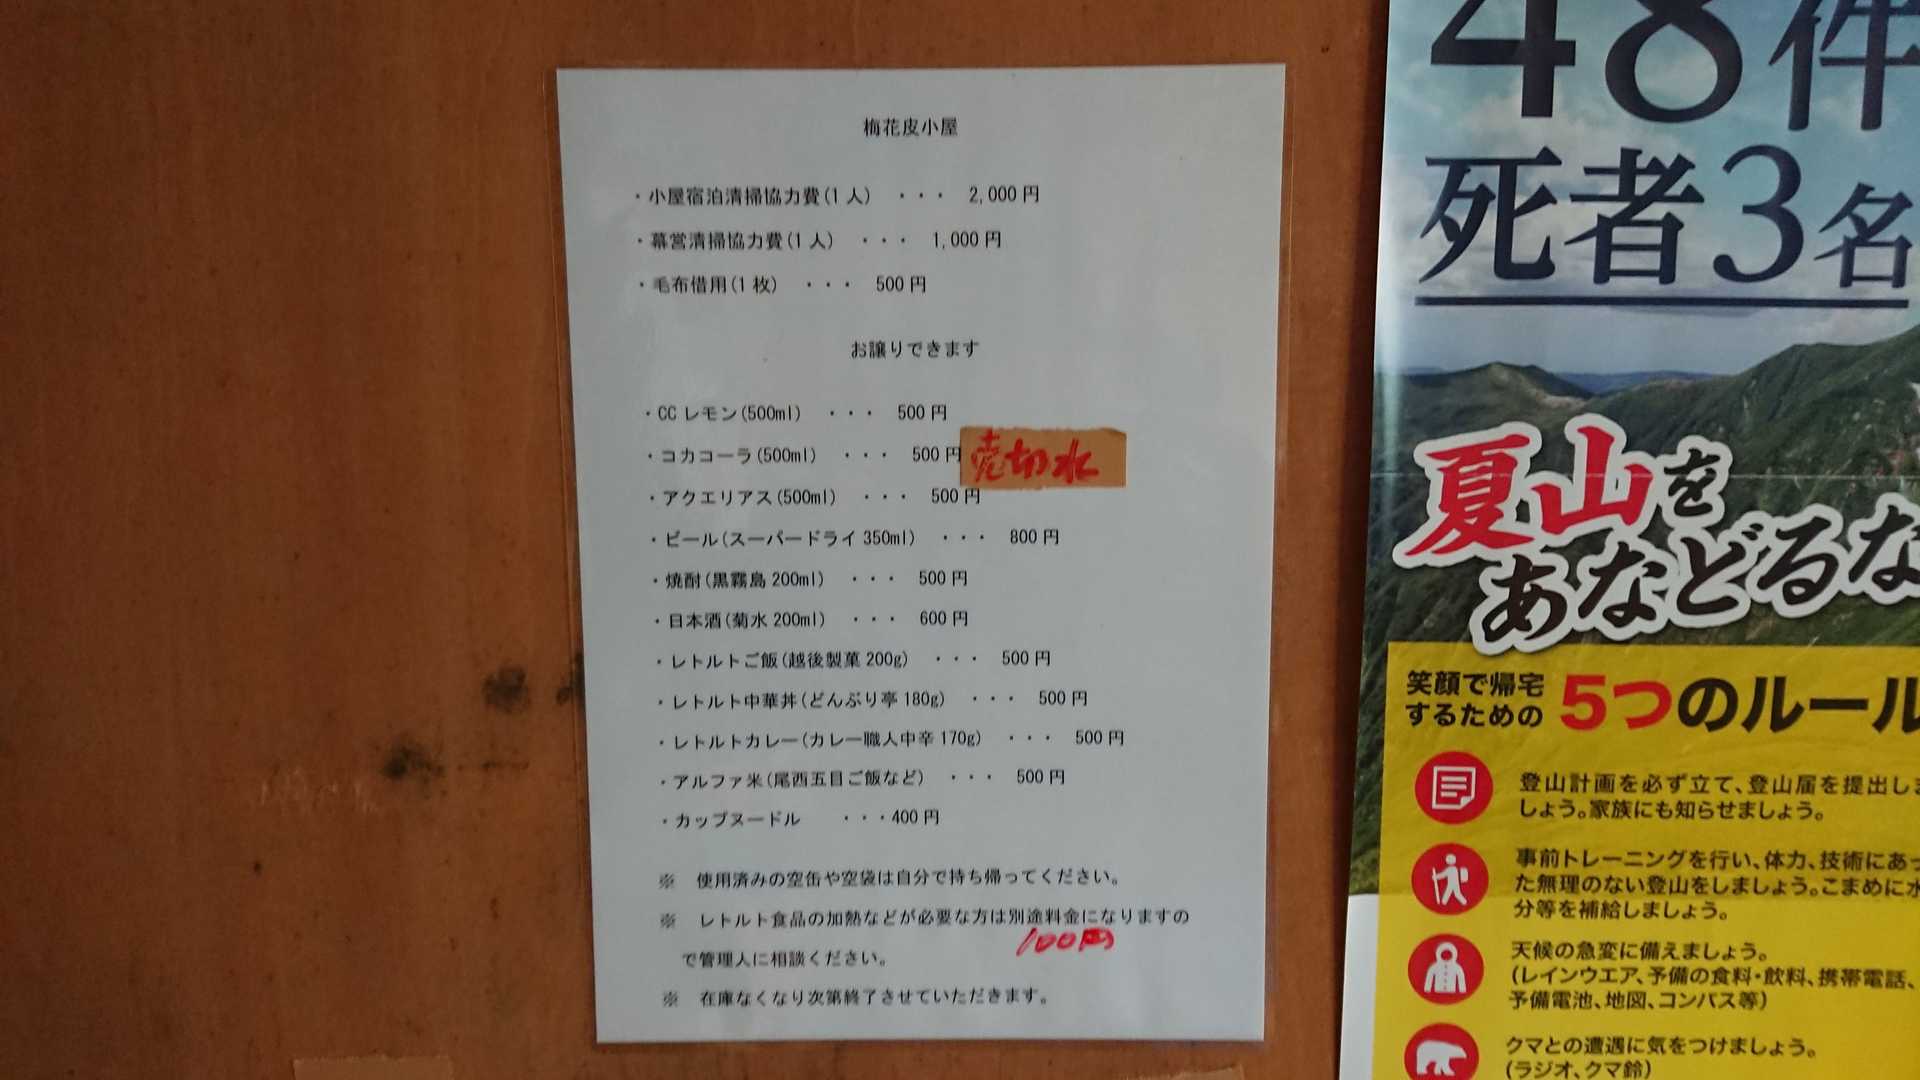 梅花皮小屋
・小屋宿泊清掃協力費(1人) ・・・ 2,000円
・幕営清掃協力費(1人) ・・・ 1,000円
・毛布借用(1枚) ・・・ 500円
お譲りできます
・CCレモン(500ml) ・・・ 500円
・コカコーラ(500ml) ・・・ 500円 売切れ
・アクエリアス(500ml) ・・・ 500円
・ビール(スーパードライ350ml) ・・・ 800円
・焼酎(黒霧島200ml) ・・・ 500円
・日本酒(菊水200ml) ・・・ 600円
・レトルトご飯(越後製菓200g) ・・・ 500円
・レトルト中華丼(どんぶり亭180g) ・・・ 500円
・レトルトカレー(カレー職人中辛170g) ・・・ 500円
・アルファ米(尾西五目ご飯など) ・・・ 500円
・カップヌードル ・・・400円
※ 使用済みの空缶や空袋は自分で持ち帰ってください。
※ レトルト食品の加熱などが必要な方は別途料金になりますの
100円
で管理人に相談ください。
※ 在庫なくなり次第終了させていただきます。
48件
死者3名
夏山を
あなどるな
笑顔で帰宅
するための
5つのルール
登山計画を必ず立て、登山届を提出しま
しょう。家族にも知らせましょう。
事前トレーニングを行い、体力、技術にあっ
た無理のない登山をしましょう。こまめに水
分等を補給しましょう。
天候の急変に備えましょう。
(レインウエア、予備の食料・飲料、携帯電話、
予備電池、地図、コンパス等)
クマとの遭遇に気をつけましょう。
(ラジオ、クマ鈴)